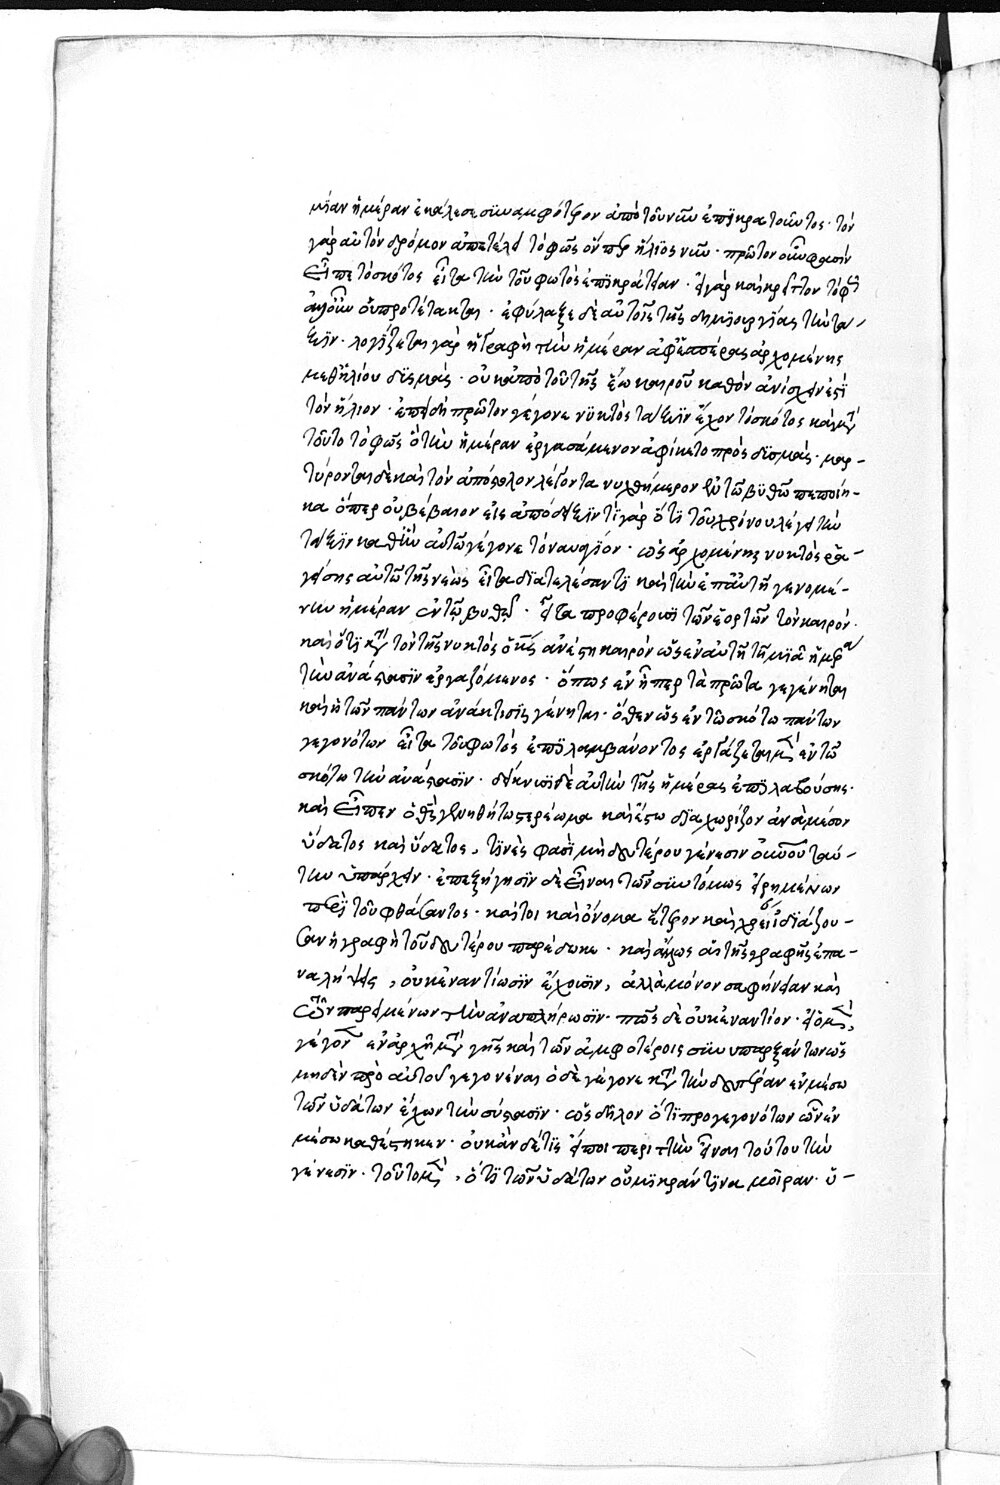 μίαν ἡμέραν ἐκάλεσε συναμφότερον ἀπὸ τοῦ νῦν ἐπικρατοῦντος· τὸν
γὰρ αὐτὸν δρόμον ἀπετέλει τὸ φῶς ὅνπερ ἥλιος νῦν· πρῶτον οὖν φασὶν
εἶπε τὸ σκότος εἶτα τὴν τοῦ φωτὸς ἐπικράτειαν· εἰ γὰρ καὶ κρεῖττον τὸ φῶς
ἀλλ' οὖν οὐ προτέτακται· ἐφύλαξε δὲ αὐτοῖς τῆς δημιουργίας τὴν τά-
ξιν· λογίζεται γὰρ ἡ γραφὴ τὴν ἡμέραν ἀφ' ἑσπέρας ἀρχομένης
μεθ' ἡλίου δυσμάς· οὐκ ἀπὸ τοῦ τῆς ἕω καιροῦ καθ' ὃν ἀνίσχειν ἐστὶ
τὸν ἥλιον· ἐπειδὴ πρῶτον γέγονε νυκτὸς τάξιν ἔχον τὸ σκότος καὶ μετὰ
τοῦτο τὸ φῶς ὃ τὴν ἡμέραν ἐργασάμενον ἀφίκετο πρὸς δυσμάς· μαρ-
τύρονται δὲ καὶ τὸν ἀπόστολον λέγοντα νυχθήμερον ἐν τῷ βυθῷ πεποίη-
κα ὅπερ οὐ βέβαιον εἰς ἀπόδειξιν τί γὰρ ὅτι τοῦ χρόνου λέγει τὴν
τάξιν καθ' ἣν αὐτῷ γέγονε τὸ ναυάγιον· ὡς ἀρχομένης νυκτὸς ῥα-
γείσης αὐτῷ τῆς νεὼς εἶτα διατελέσαντι καὶ τὴν ἐπ' αὐτῇ γενομέ-
νην ἡμέραν ἐν τῷ βυθῷ· εἶτα προφέρουσι τῶν ἑορτῶν τὸν καιρόν·
καὶ ὅτι κατὰ τὸν τῆς νυκτὸς ὁ κύριος ἀνέστη καιρὸν ὡς ἐν αὐτῇ τῇ μιᾷ ἡμέρᾳ
τὴν ἀνάστασιν ἐργαζόμενος· ὅπως ἐν ᾗπερ τὰ πρῶτα γεγένηται
καὶ ἡ τῶν πάντων ἀνάκτισις γένηται· ὅθεν ὡς ἐν τῷ σκότω πάντων
γεγονότων εἶτα τοῦ φωτὸς ἐπιλαμβάνοντος ἐργάζεται μὲν ἐν τῷ
σκότω τὴν ἀνάστασιν· δείκνυσι δὲ αὐτὴν τῆς ἡμέρας ἐπιλαβούσης·
καὶ εἶπεν ὁ θεὸς γενηθήτω στερέωμα καὶ ἔστω διαχωρίζον ἀνὰ μέσον
ὕδατος καὶ ὕδατος, τινὲς φασὶ μὴ δευτέρου γένεσιν οὐρανοῦ ταύ-
την ὑπάρχειν· ἐπεξήγησιν δὲ εἶναι τῶν συντόμως εἰρημένων
περὶ τοῦ φθάσαντος· καίτοι καὶ ὄνομα ἕτερον καὶ χρείαν ἰδιάζου-
σαν ἡ γραφὴ τοῦ δευτέρου παρέδωκε· καὶ ἄλλως αἱ τῆς γραφῆς ἐπα-
ναλήψεις, οὐκ ἐναντίωσιν ἔχουσιν, ἀλλὰ μόνον σαφήνειαν καὶ
τῶν παρειμένων τὴν ἀναπλήρωσιν· πῶς δὲ οὐκ ἐναντίον· εἰ ὁ μὲν,
γέγονεν ἐν ἀρχῇ μετὰ γῆς καὶ τῶν ἀμφοτέροις συνυπαρξάντων ὡς
μηδὲν πρὸ αὐτοῦ γεγονέναι ὁ δὲ γέγονε κατὰ τὴν δευτέραν ἐν μέσω
τῶν ὑδάτων ἔχων τὴν σύστασιν· ὡς δῆλον ὅτι προγεγονότων ὧν ἐν
μέσω καθέστηκεν· οὐκ ἂν δέ τις εἴποι περιττὴν εἶναι τούτου τὴν
γένεσιν· τοῦτο μὲν, ὅτι τῶν ὑδάτων οὐ μικράν τινα μοῖραν· ὑ-